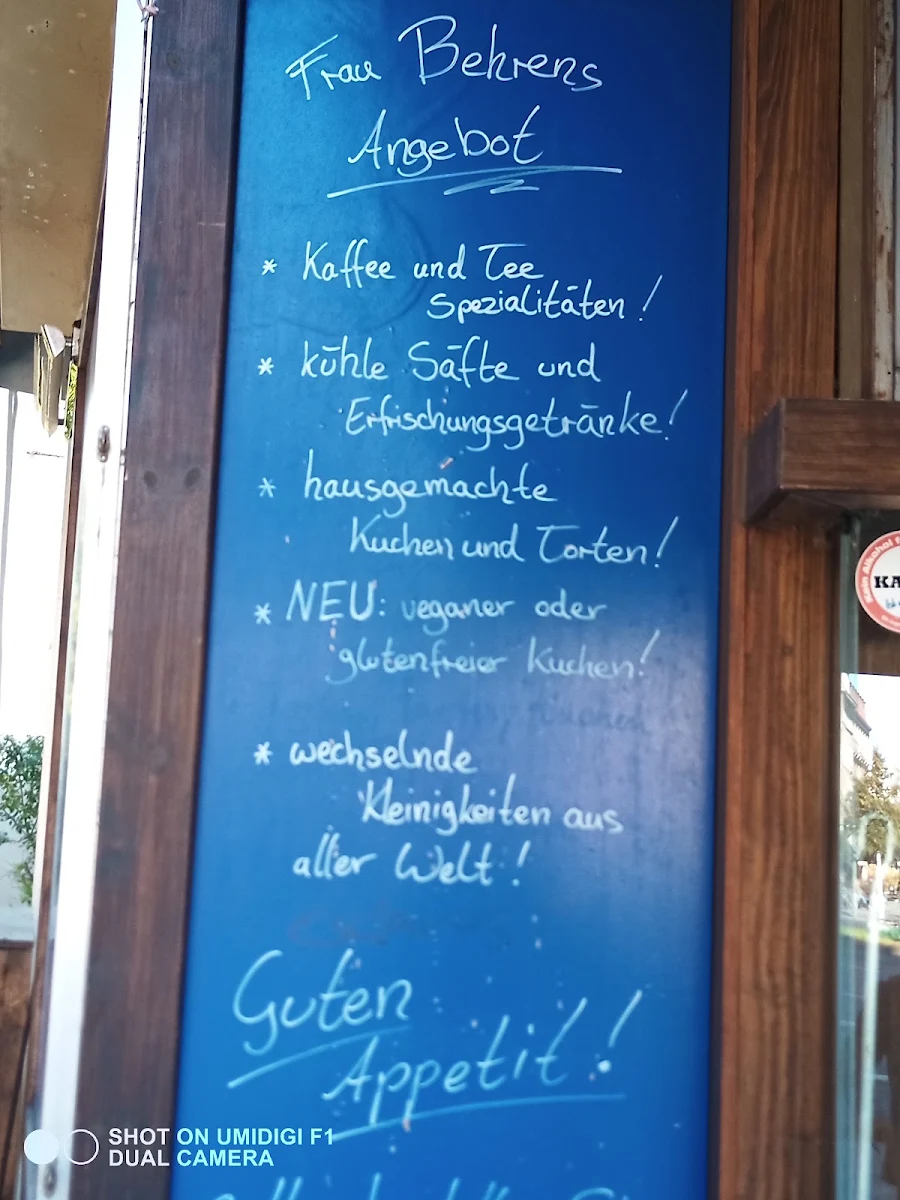 Frau Behrens
Angebot
* Kaffee und Tee
Spezialitäten!
* kühle Säfte und
Erfrischungsgetränke!
* hausgemachte
Kuchen und Torten!
* NEU: veganer oder
glutenfreier Kuchen!
* wechselnde
Kleinigkeiten aus
aller Welt!
Guten
Appetit!
SHOT ON UMIDIGI F1
DUAL CAMERA
Kein Alkohol
KA